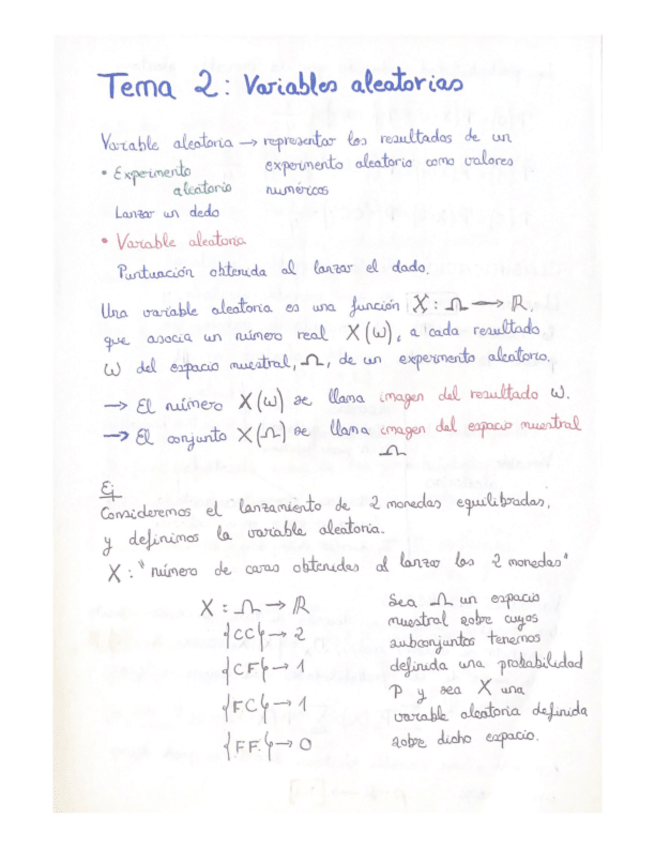 Tema 2: Variables aleatorias
Variable aleatoria → representar los resultados de un
experimento aleatorio como valores
numéricos
• Experimento
aleatorio
Lanzar un dedo
• Variable aleatoria
Puntuación obtenida al lanzar el dado.
Una variable aleatoria es una función X: Ω → ℝ.
que asocia un número real X(ω), a cada resultado
ω del espacio muestral, Ω, de un experimento aleatorio.
→ El número X(ω) se llama imagen del resultado ω.
→ El conjunto X(Ω) se llama imagen del espacio muestral
Ω
Ej
Consideremos el lanzamiento de 2 monedas equilibradas,
y definimos la variable aleatoria.
X: "número de caras obtenidas al lanzar las 2 monedas"
X: Ω → ℝ
{CC} → 2
{CF} → 1
{FC} → 1
{FF.} → 0
Sea Ω un espacio
muestral sobre cuyos
subconjuntos tenemos
definida una probabilidad
P y sea X una
variable aleatoria definida
sobre dicho espacio.